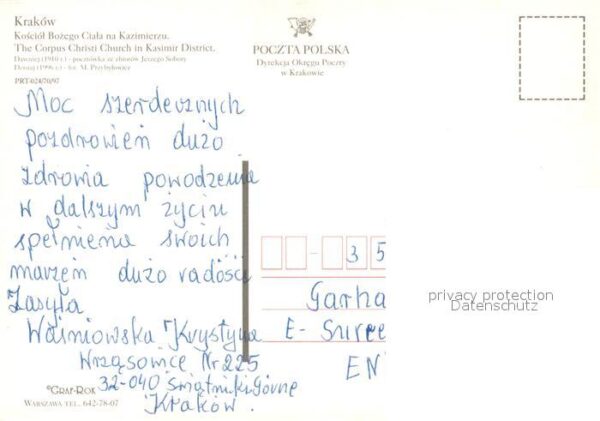 Kraków
Kościół Bożego Ciała na Kazimierzu.
The Corpus Christi Church in Kasimir District.
Dawniej (1910 r.) - pocztówka ze zbiorów Jerzego Sobory
Dzisiaj (1996 r.) - fot. M. Przybyłowicz
PRT-024/70/97
POCZTA POLSKA
Dyrekcja Okręgu Poczty
w Krakowie
Moc szerdecznych
pozdrowień dużo
zdrowia powodzenia
w dalszym życiu
spełnienia swoich
marzeń dużo radości
Zasyła
Waśniowska Krystyna
Wrząsowice Nr 225
32-040 Świątniki Górne
Kraków.
- 3 5
Garha
E- Surre
EN
privacy protection
Datenschutz
©GRAF-ROK
WARSZAWA TEL. 642-78-07